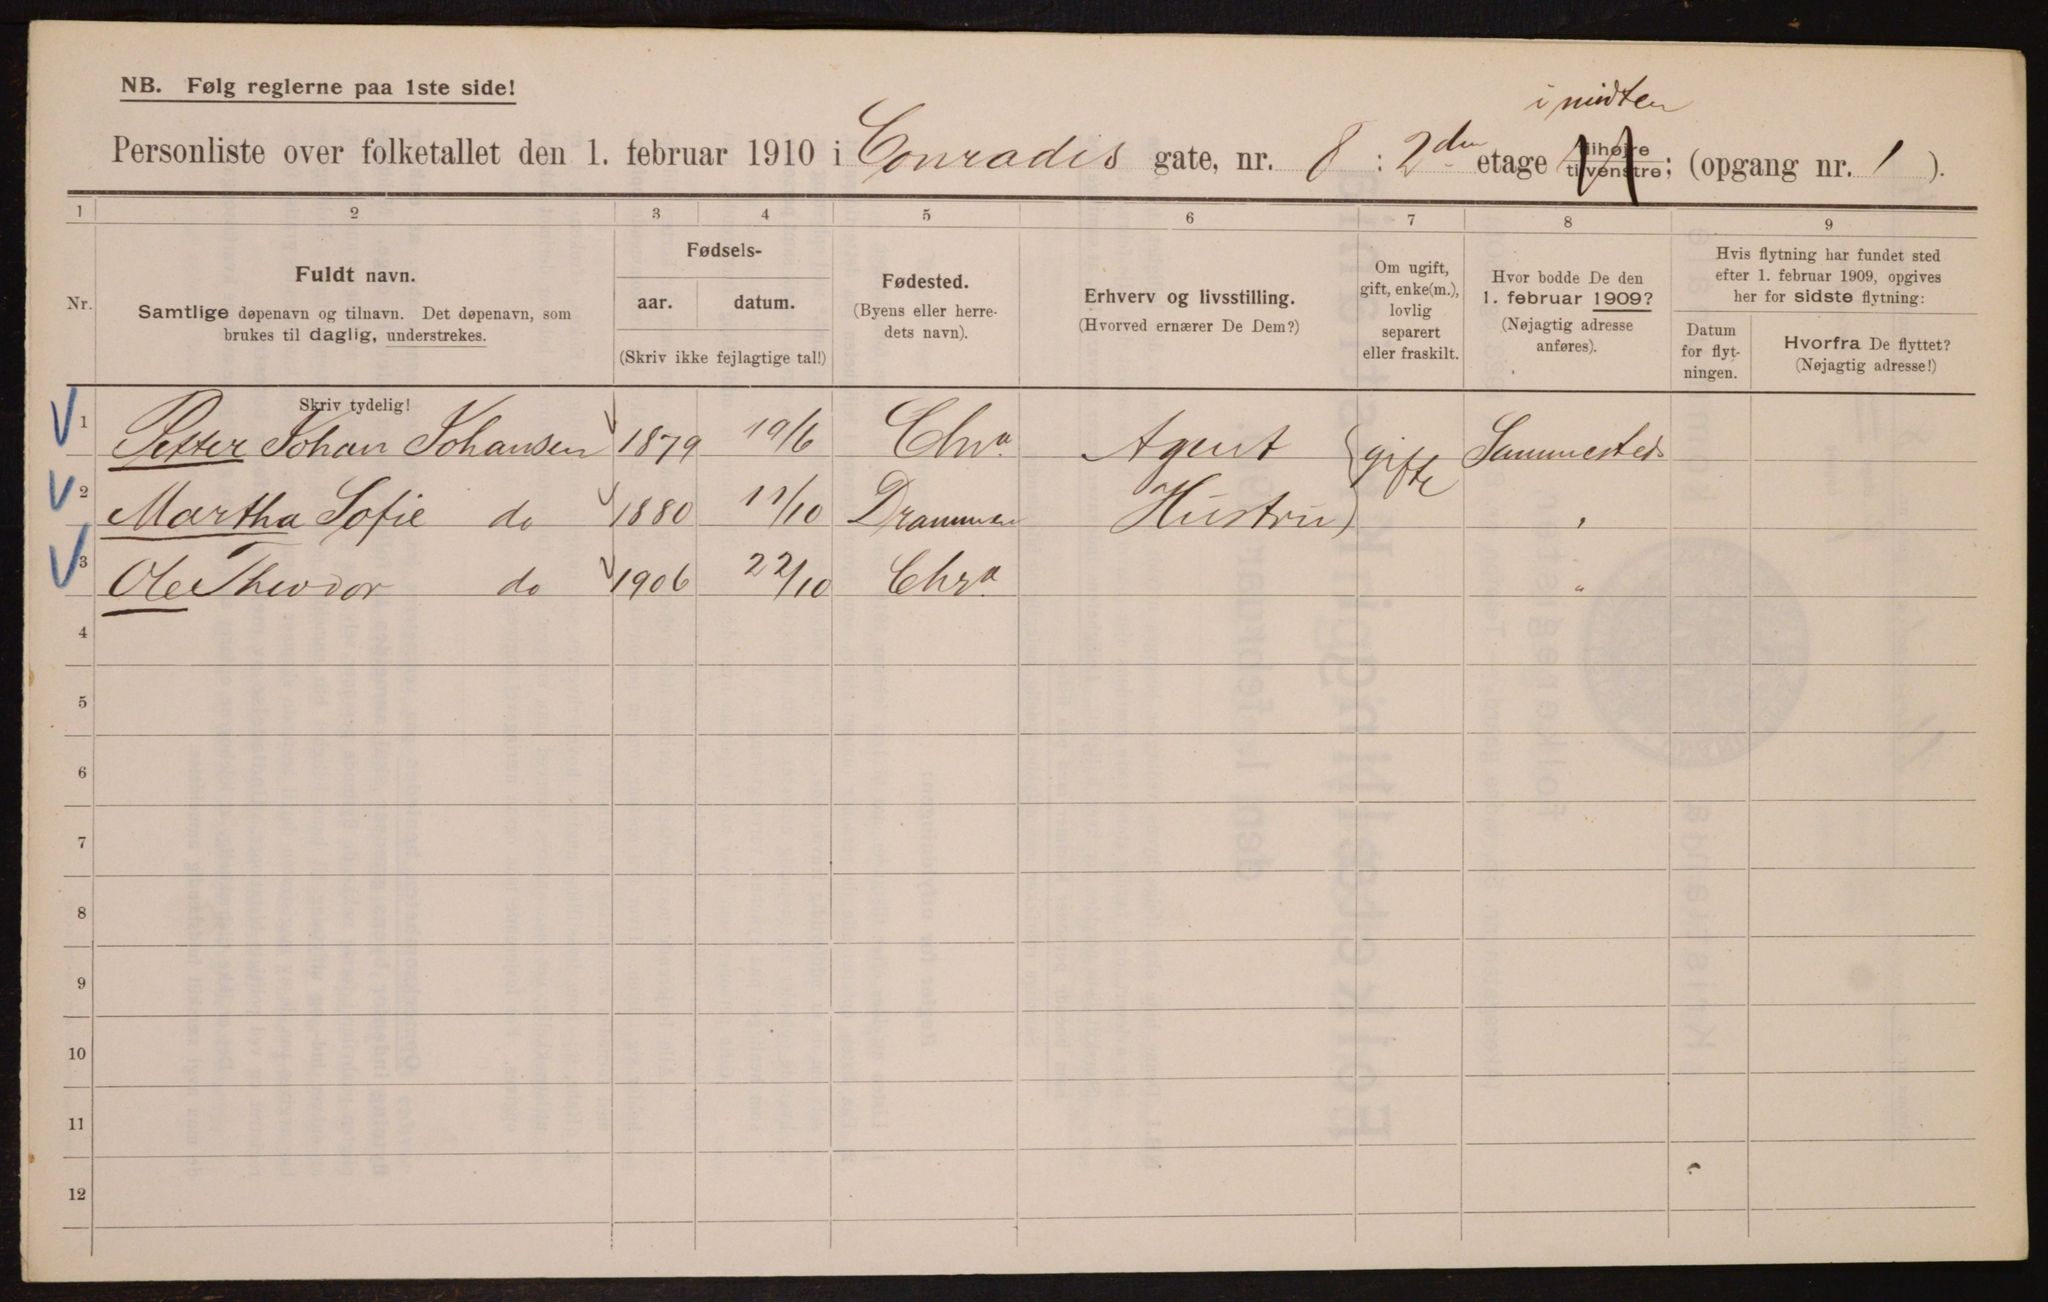 NB. Følg reglerne paa 1ste side!
i midten
Personliste over folketallet den 1. februar 1910 i Conradis gate, nr. 8 : 2den etage tilhøjre tilvenstre; (opgang nr. 1 ).
1 2 3 4 5 6 7 8 9
Nr.
Fuldt navn.
Samtlige døpenavn og tilnavn. Det døpenavn, som
brukes til daglig, understrekes.
Fødsels-
aar. datum.
(Skriv ikke fejlagtige tal!)
Fødested.
(Byens eller herre-
dets navn).
Erhverv og livsstilling.
(Hvorved ernærer De Dem?)
Om ugift,
gift, enke(m.),
lovlig
separert
eller fraskilt.
Hvor bodde De den
1. februar 1909?
(Nøjagtig adresse
anføres).
Hvis flytning har fundet sted
efter 1. februar 1909, opgives
her for sidste flytning:
Datum
for flyt-
ningen.
Hvorfra De flyttet?
(Nøjagtig adresse!)
Skriv tydelig!
1 Petter Johan Johansen 1879 19/6 Chra. Agent gifte Sammesteds
2 Martha Sofie do 1880 11/10 Drammen Hustru "
3 Ole Theodor do 1906 22/10 Chra. "
4
5
6
7
8
9
10
11
12